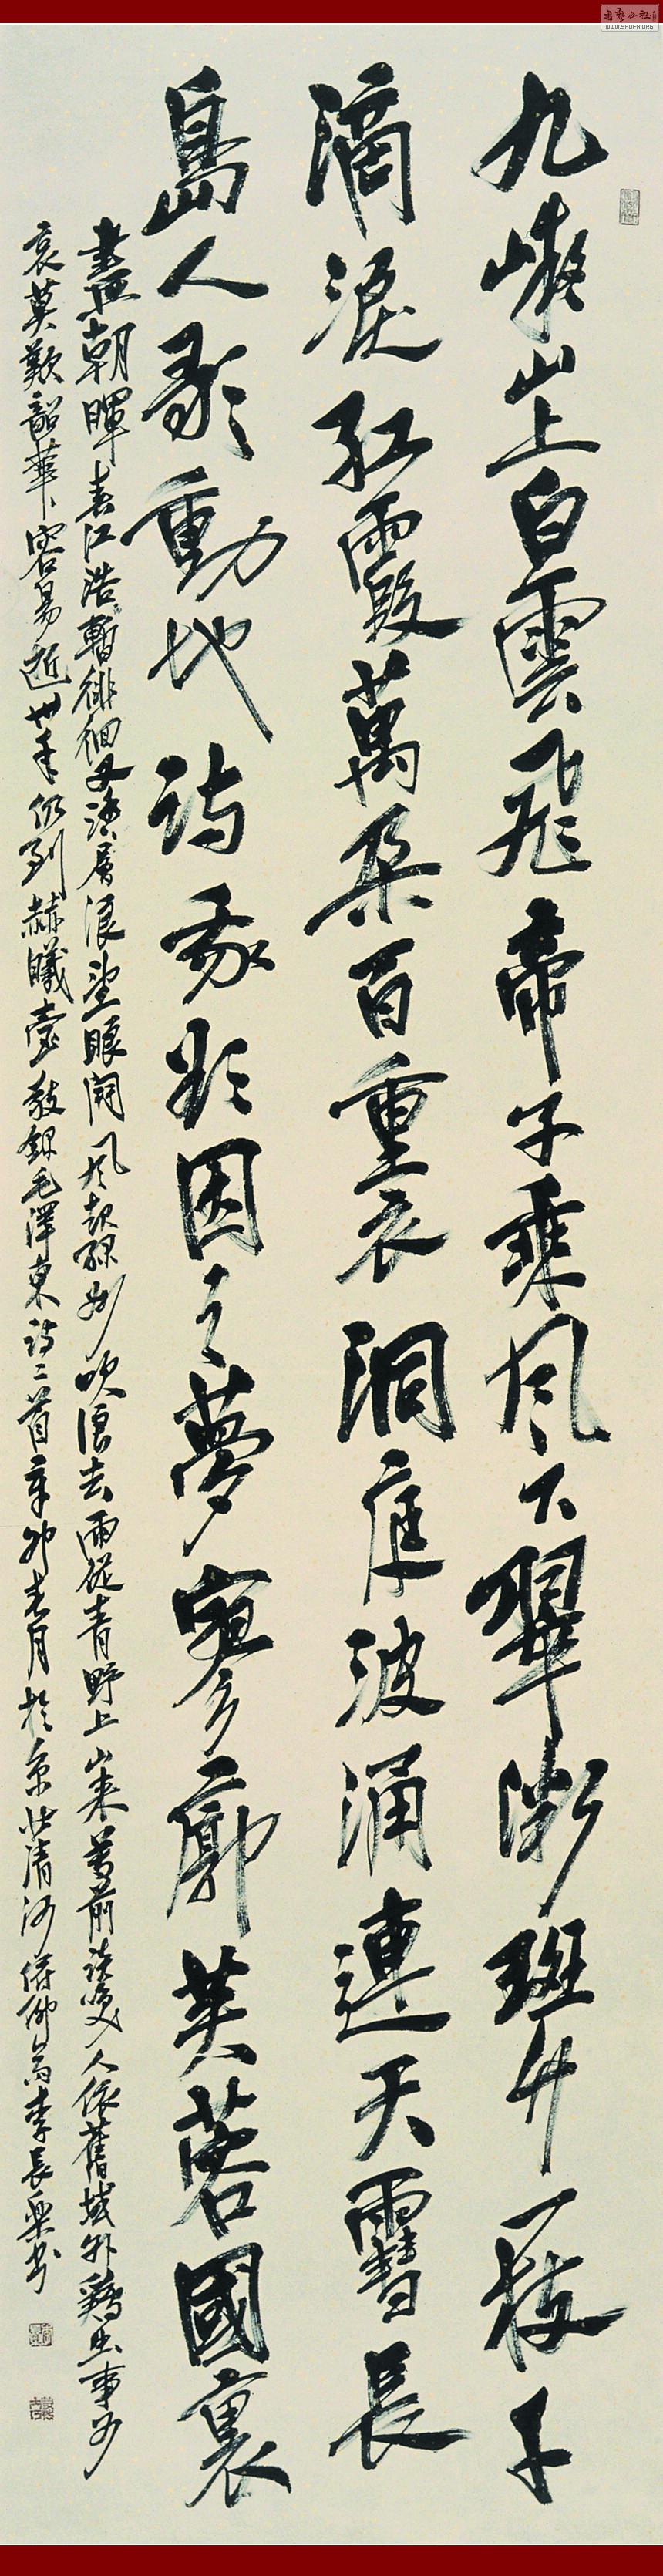 九嶷山上白雲飛帝子乘風下翠微斑竹一枝千
滴淚紅霞萬朵百重衣洞庭波涌連天雪長
島人歌動地詩我欲因之夢寥廓芙蓉國裏
盡朝暉春江浩暫徘徊又踏層浪望眼開風起綠洲吹浪去雨從青野上山來尊前談笑人依舊域外鷄虫事可
哀莫歎韶華容易逝卅年仍到赫曦臺敬錄毛澤東詩二首辛卯春月於京北清河李長樂書
WWW.SHUFA.ORG